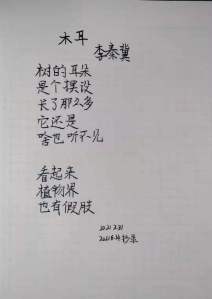 木耳
李秦冀
树的耳朵
是个摆设
长了那么多
它还是
啥也听不见
看起来
植物界
也有假肢
抄录